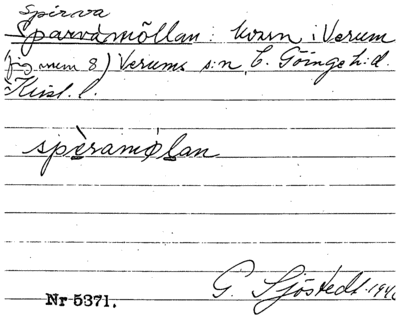 Spirva
Sparvamöllan: kvarn i Verum
(fig. num 8) Verums s:n, V. Göinge h:d.
Krist. l.
spèramø̀lan
G. Sjöstedt. 194
Nr 5371.